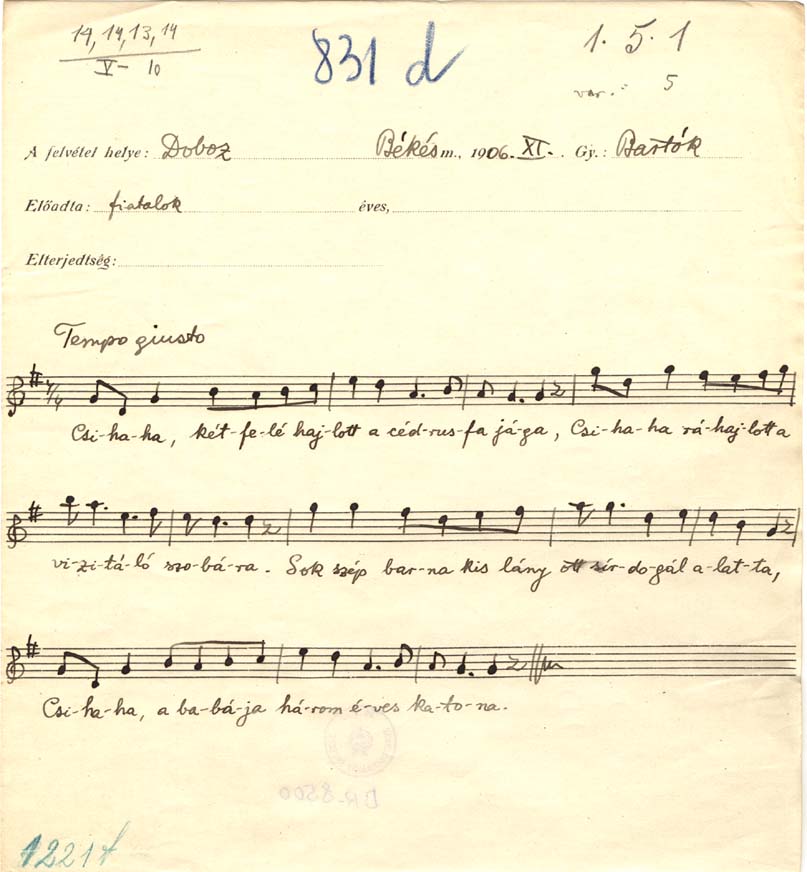 14, 14, 13, 14
V- 10
831 d
1. 5. 1
var.: 5
A felvétel helye: Doboz Békés m., 1906. XI. Gy.: Bartók
Előadta: fiatalok éves,
Elterjedtség:
Tempo giusto
7/4
Csi-ha-ha, két-fe-lé haj-lott a céd-rus-fa já-ga, Csi-ha-ha rá-haj-lott a
vi-zi-tá-ló szo-bá-ra. Sok szép bar-na kis lány ott sír-do-gál a-lat-ta,
Csi-ha-ha, a ba-bá-ja há-rom é-ves ka-to-na.